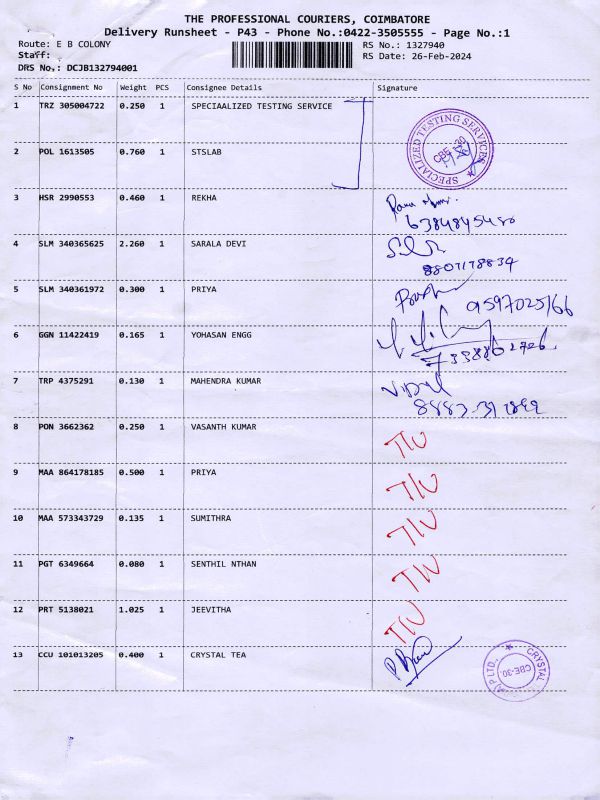 THE PROFESSIONAL COURIERS, COIMBATORE
Delivery Runsheet - P43 - Phone No.:0422-3505555 - Page No.:1
Route: E B COLONY
RS No.: 1327940
Staff:
RS Date: 26-Feb-2024
DRS No.: DCJB132794001
S No Consignment No Weight PCS Consignee Details Signature
1 TRZ 305004722 0.250 1 SPECIAALIZED TESTING SERVICE
SPECIALIZED TESTING SERVICES
CBE-30
2 POL 1613505 0.760 1 STSLAB
3 HSR 2990553 0.460 1 REKHA
4 SLM 340365625 2.260 1 SARALA DEVI
8807178834
5 SLM 340361972 0.300 1 PRIYA
9597025166
6 GGN 11422419 0.165 1 YOHASAN ENGG
7338862726
7 TRP 4375291 0.130 1 MAHENDRA KUMAR
8 PON 3662362 0.250 1 VASANTH KUMAR
9 MAA 864178185 0.500 1 PRIYA
10 MAA 573343729 0.135 1 SUMITHRA
11 PGT 6349664 0.080 1 SENTHIL NTHAN
12 PRT 5138021 1.025 1 JEEVITHA
13 CCU 101013205 0.400 1 CRYSTAL TEA
CRYSTAL
P LTD.
CBE-30.